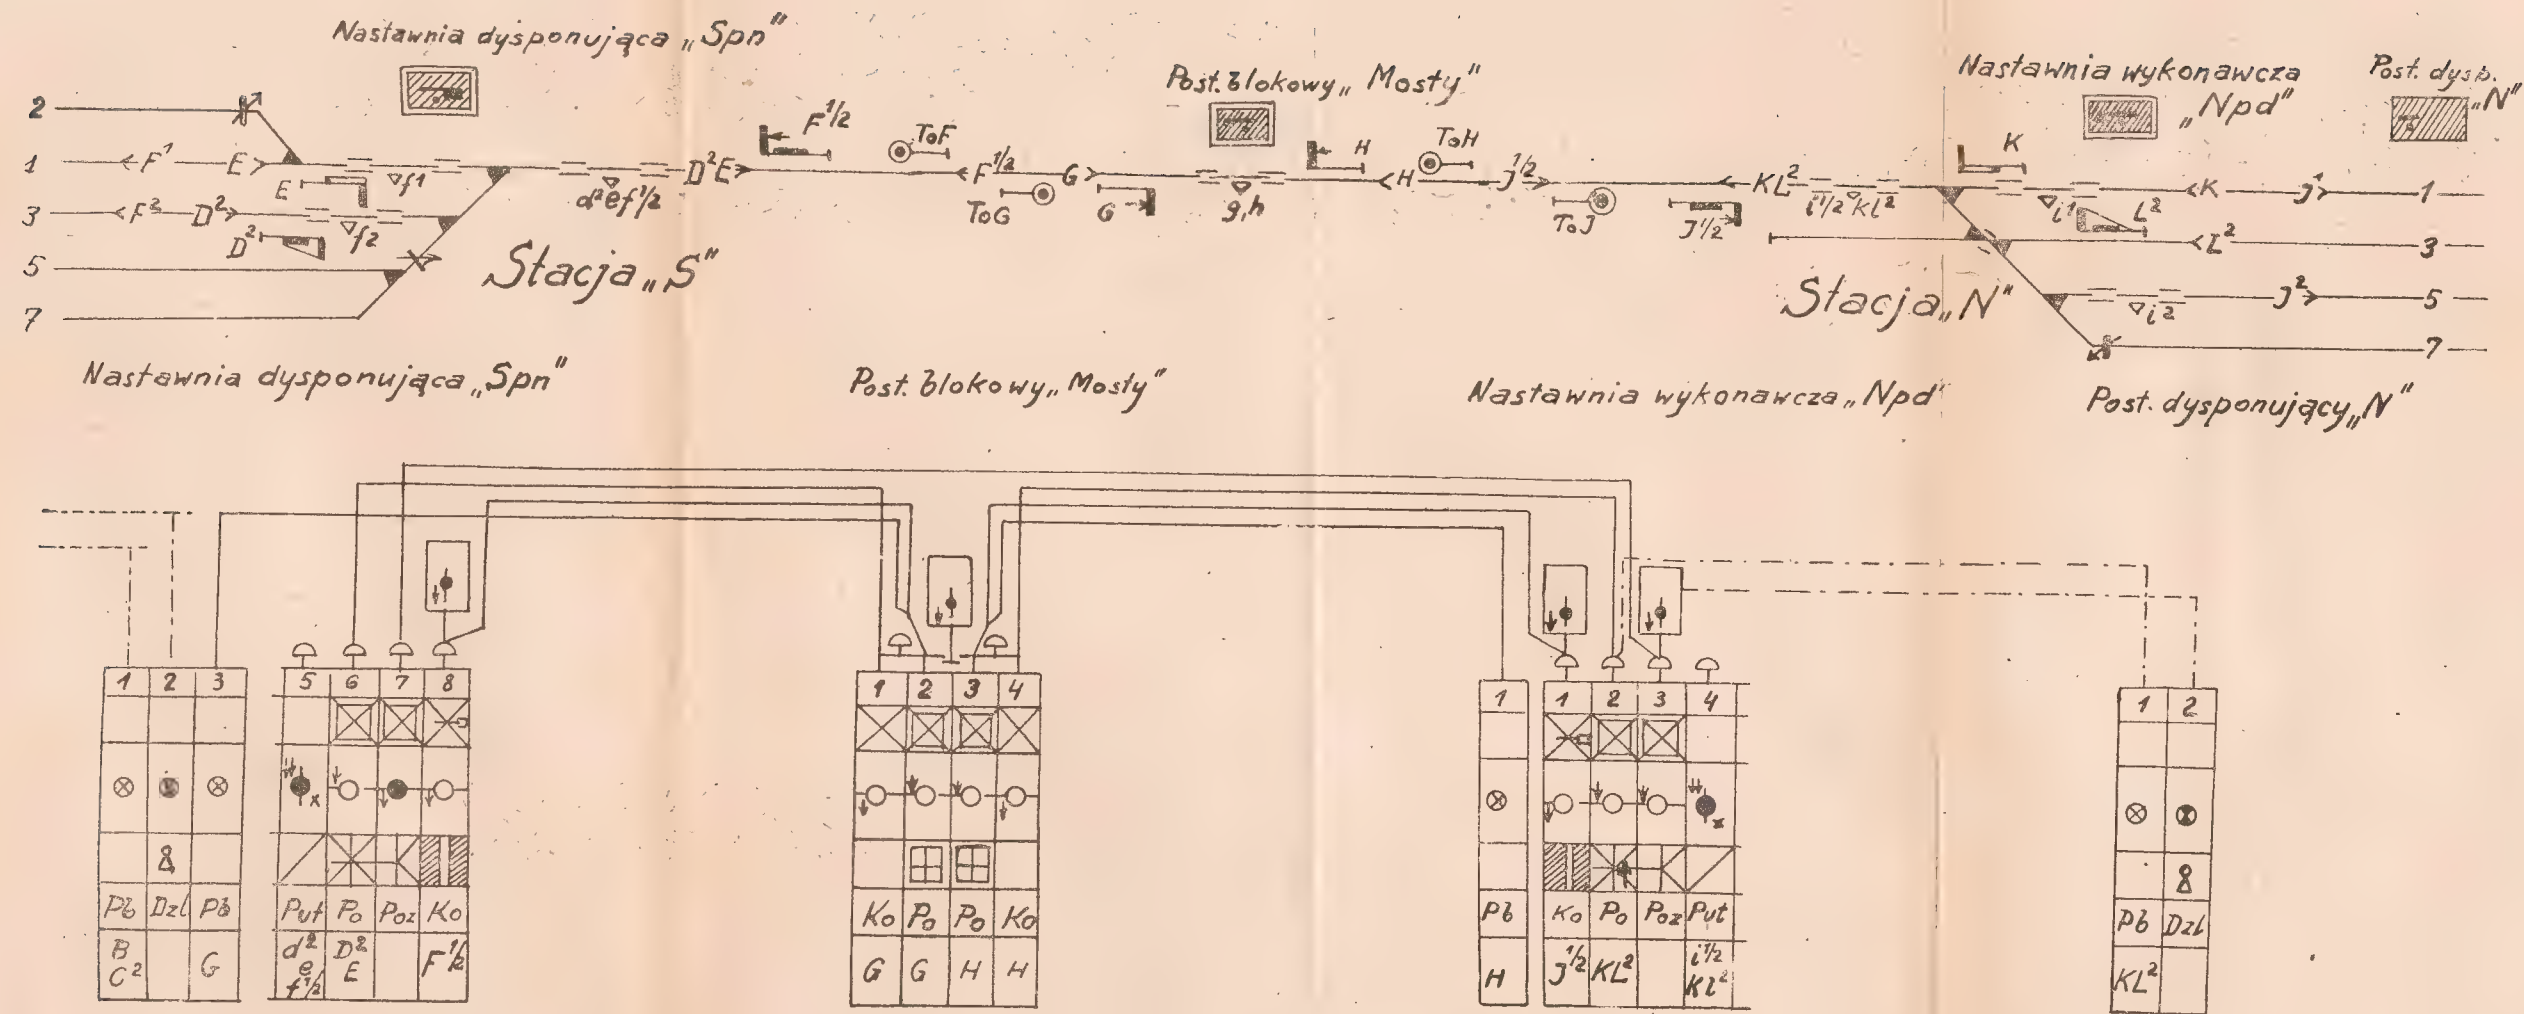 Nastawnia dysponująca „Spn”
Post. blokowy „Mosty”
Nastawnia wykonawcza
„Npd”
Post. dysp.
„N”
2
1
F¹
E
E
f1
D²E
F½
ToF
F½
G
ToG
G
H
ToH
H
J½
ToJ
J½
KL²
K
i½ kl²
i¹
L²
K
J¹
1
d²ef½
g,h
3
F²
D²
D²
f2
L²
3
5
Stacja „S”
Stacja „N”
i2
J²
5
7
7
Nastawnia dysponująca „Spn”
Post. blokowy „Mosty”
Nastawnia wykonawcza „Npd”
Post. dysponujący „N”
1 2 3
Pb Dzl Pb
B
C²
G
5 6 7 8
Put Po Poz Ko
d²
e
f½
D²
E
F½
1 2 3 4
Ko Po Po Ko
G G H H
1
Pb
H
1 2 3 4
Ko Po Poz Put
J½ KL²
i½
Kl²
1 2
Pb Dzl
KL²